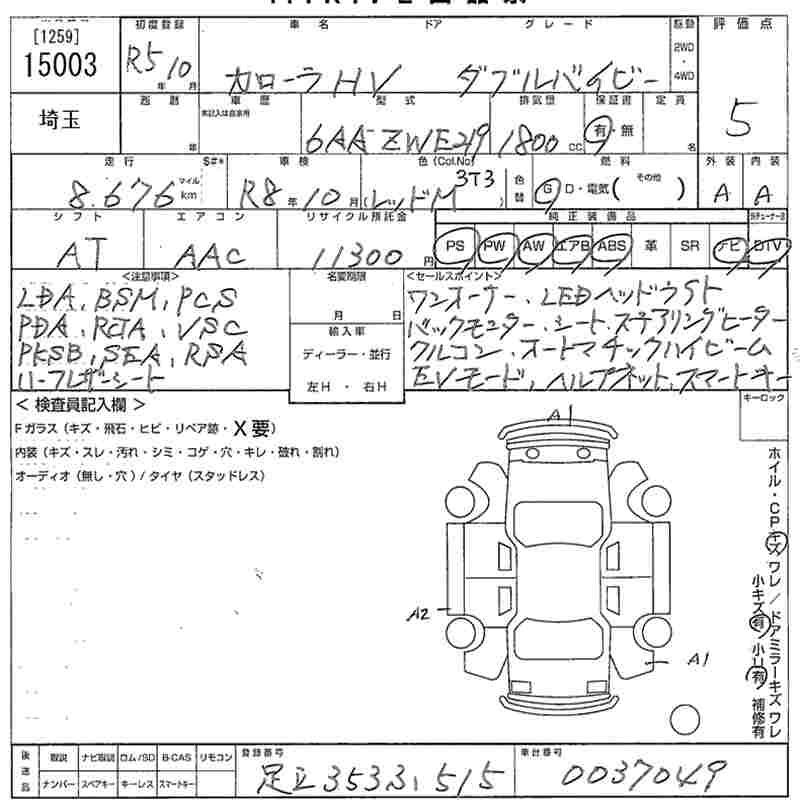 [1259]
15003
埼玉
初度登録
R5 10
年 月
車名 ドア グレード
カローラHV ダブルバイビー
駆動
2WD
・
4WD
評価点
5
西暦
年
車歴
未記入は自家用
型式
6AA-ZWE219
排気量
1800 cc
保証書
有・無
定員
名
走行
8.676
マイル
km
S#*
車検
R8年10月
色(Col.No)
レッドM 3T3
色替
燃料
G D・電気( その他 )
外装
A
内装
A
シフト
AT
エアコン
AAC
リサイクル預託金
11300 円
純正装備品
PS PW AW エアB ABS 革 SR ナビ DTV
<注意事項>
LDA, BSM, PCS
PDA, RCTA, VSC
PKSB, SEA, RSA
ハーフレザーシート
名変期限
月 日
輸入車
ディーラー・並行
左H ・ 右H
<セールスポイント>
ワンオーナー、LEDヘッドライト
バックモニター、シート、ステアリングヒーター
クルコン、オートマチックハイビーム
EVモード、ヘルプネット、スマートキー
< 検査員記入欄 >
Fガラス(キズ・飛石・ヒビ・リペア跡・X要)
内装(キズ・スレ・汚れ・シミ・コゲ・穴・キレ・破れ・割れ)
オーディオ(無し・穴)/タイヤ(スタッドレス)
キーロック
A1
A2
A1
ホイル・CPキズ ワレ / ドアミラーキズ ワレ
小キズ有 小凹有 補修有
後送品
取説 ナビ取説 ロム/SD B-CAS リモコン
ナンバー スペアキー キーレス スマートキー
登録番号
足立 353 ろ 515
車台番号
0037049